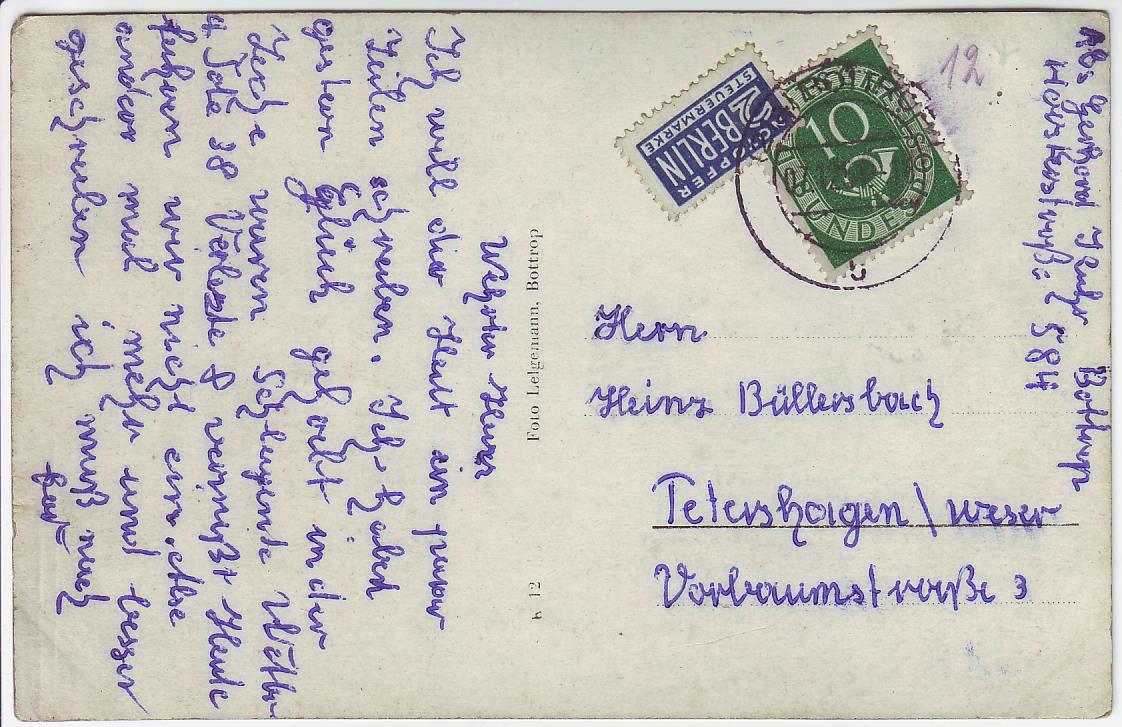 Werter Heinz
Ich will dier Heut ein paar
Zeilen schreiben. Ich habe
gestern Glück gehabt in der
Zeche waren Schlagende Wetter
4 Tote 38 Verlezte 8 vermißt Heute
fuhren wir nicht ein. etlse
ander mal mehr und besser
geschreiben ich muß nach
Foto Lelgemann, Bottrop
K 12
NOTOPFER
2 BERLIN
STEUERMARKE
10
DEUTSCHE BUNDESPOST
BOTTROP
b
12
Abs Gerhard Bottrop
584
Herrn
Heinz Büllersbach
Petershagen / Weser
Vorbaumstraße 3